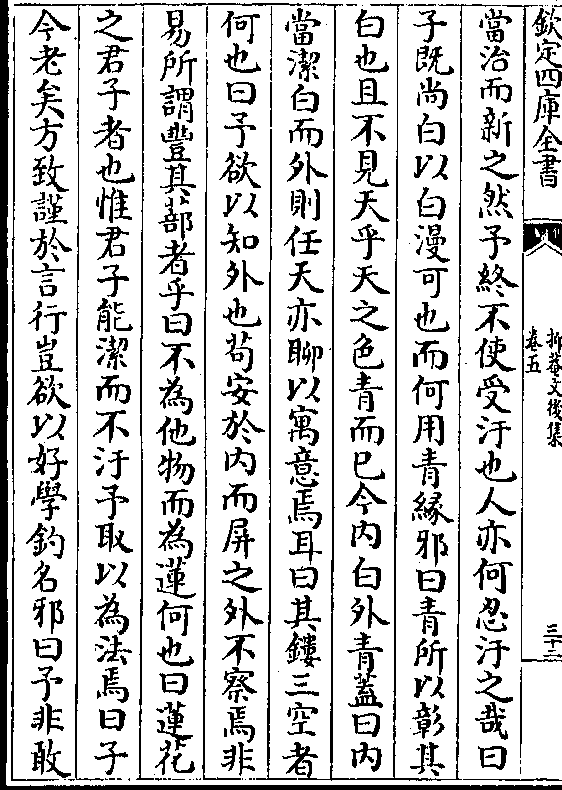 欽定四庫全書
抑菴文後集
卷五
三十二
當治而新之然予終不使受汙也人亦何忍汙之哉曰
子既尚白以白漫可也而何用青緣邪曰青所以彰其
白也且不見天乎天之色青而已今内白外青蓋曰内
當潔白而外則任天亦聊以寓意焉耳曰其鏤三空者
何也曰予欲以知外也苟安於内而屏之外不察焉非
易所謂豐其蔀者乎曰不為他物而為蓮何也曰蓮花
之君子者也惟君子能潔而不汙予取以為法焉曰子
今老矣方致謹於言行豈欲以好學釣名邪曰予非敢